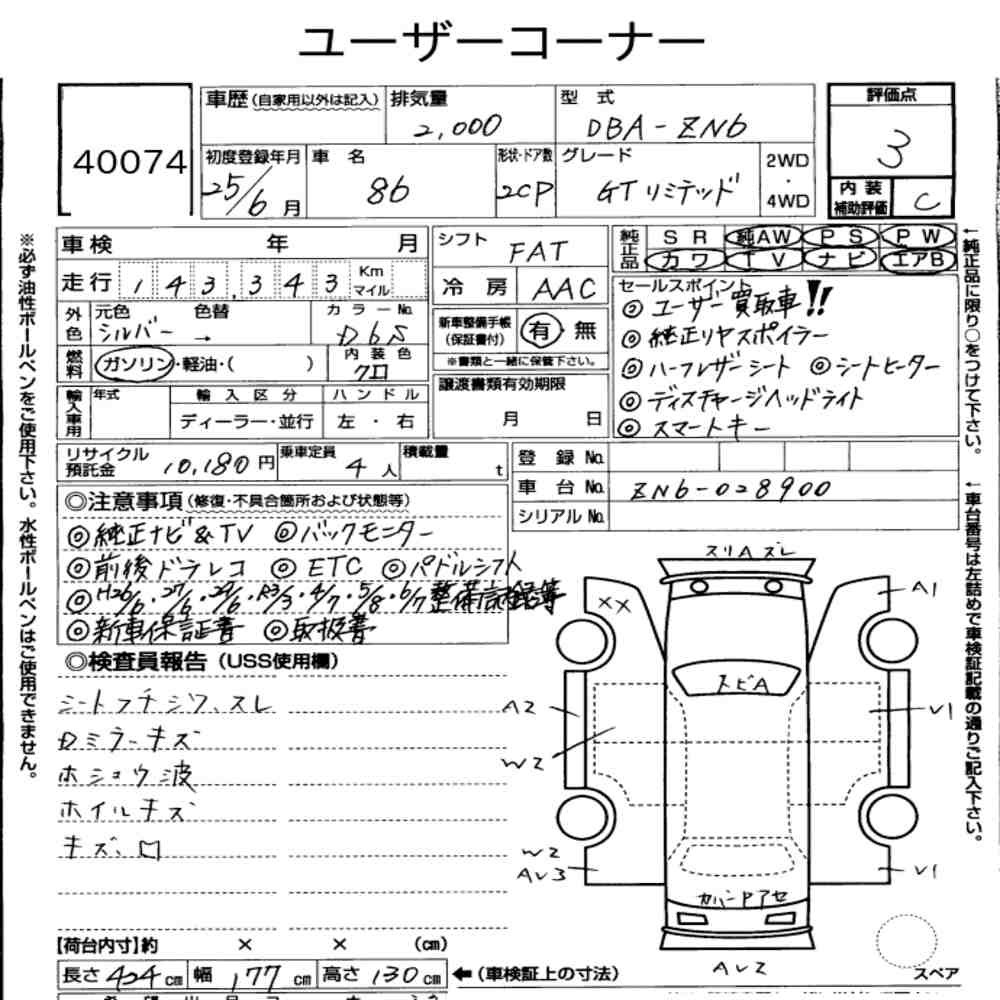 ユーザーコーナー
40074
車歴(自家用以外は記入) 排気量 2,000 型式 DBA-ZN6
初度登録年月 25/6月 車名 86 形状・ドア数 2CP グレード GTリミテッド 2WD・4WD
評価点 3
内装補助評価 C
車検 年 月
走行 143,343 Km マイル
シフト FAT
冷房 AAC
純正品 SR 純AW PS PW
カワ TV ナビ エアB
外色 元色 シルバー 色替 → カラーNo. D6S
燃料 ガソリン・軽油・( ) 内装色 クロ
新車整備手帳(保証書付) 有 無
※書類と一緒に保管下さい。
輸入車用 年式 輸入区分 ディーラー・並行 ハンドル 左・右
譲渡書類有効期限 月 日
セールスポイント
◎ユーザー買取車!!
◎純正リヤスポイラー
◎ハーフレザーシート ◎シートヒーター
◎ディスチャージヘッドライト
◎スマートキー
リサイクル預託金 10,180円 乗車定員 4人 積載量 t
登録No.
車台No. ZN6-028900
シリアルNo.
◎注意事項(修復・不具合箇所および状態等)
◎純正ナビ&TV ◎バックモニター
◎前後ドラレコ ◎ETC ◎パドルシフト
◎H26/6・27/6・29/6・R3/3・4/7・5/8・6/7整備記録簿
◎新車保証書 ◎取扱書
◎検査員報告(USS使用欄)
シートフチジワ、スレ
Dミラーキズ
ホショウ波
ホイルキズ
キズ、凹
スリAズレ
XX
A1
トビA
A2
V1
W2
W2
AV3
V1
カバーPアセ
AV2
スペア
【荷台内寸】約 × × (cm)
長さ 424cm 幅 177cm 高さ 130cm ←(車検証上の寸法)
※必ず油性ボールペンをご使用下さい。水性ボールペンはご使用できません。
←純正品に限り○をつけて下さい。
←車台番号は左詰めで車検証記載の通りご記入下さい。